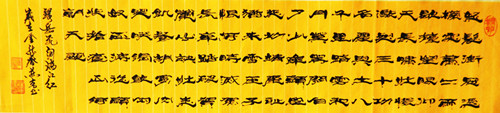 怒髮衝冠憑
闌處瀟瀟雨
歇抬望眼仰
天長嘯壯懷
激烈三十功
名塵與土八
千里路雲和
月莫等閒白
了少年頭空
悲切靖康恥
猶未雪臣子
恨何時滅駕
長車踏破賀
蘭山缺壯志
飢餐胡虜肉
笑談渴飲匈
奴血待從頭
收拾舊山河
朝天闕
岳飛詞滿江紅